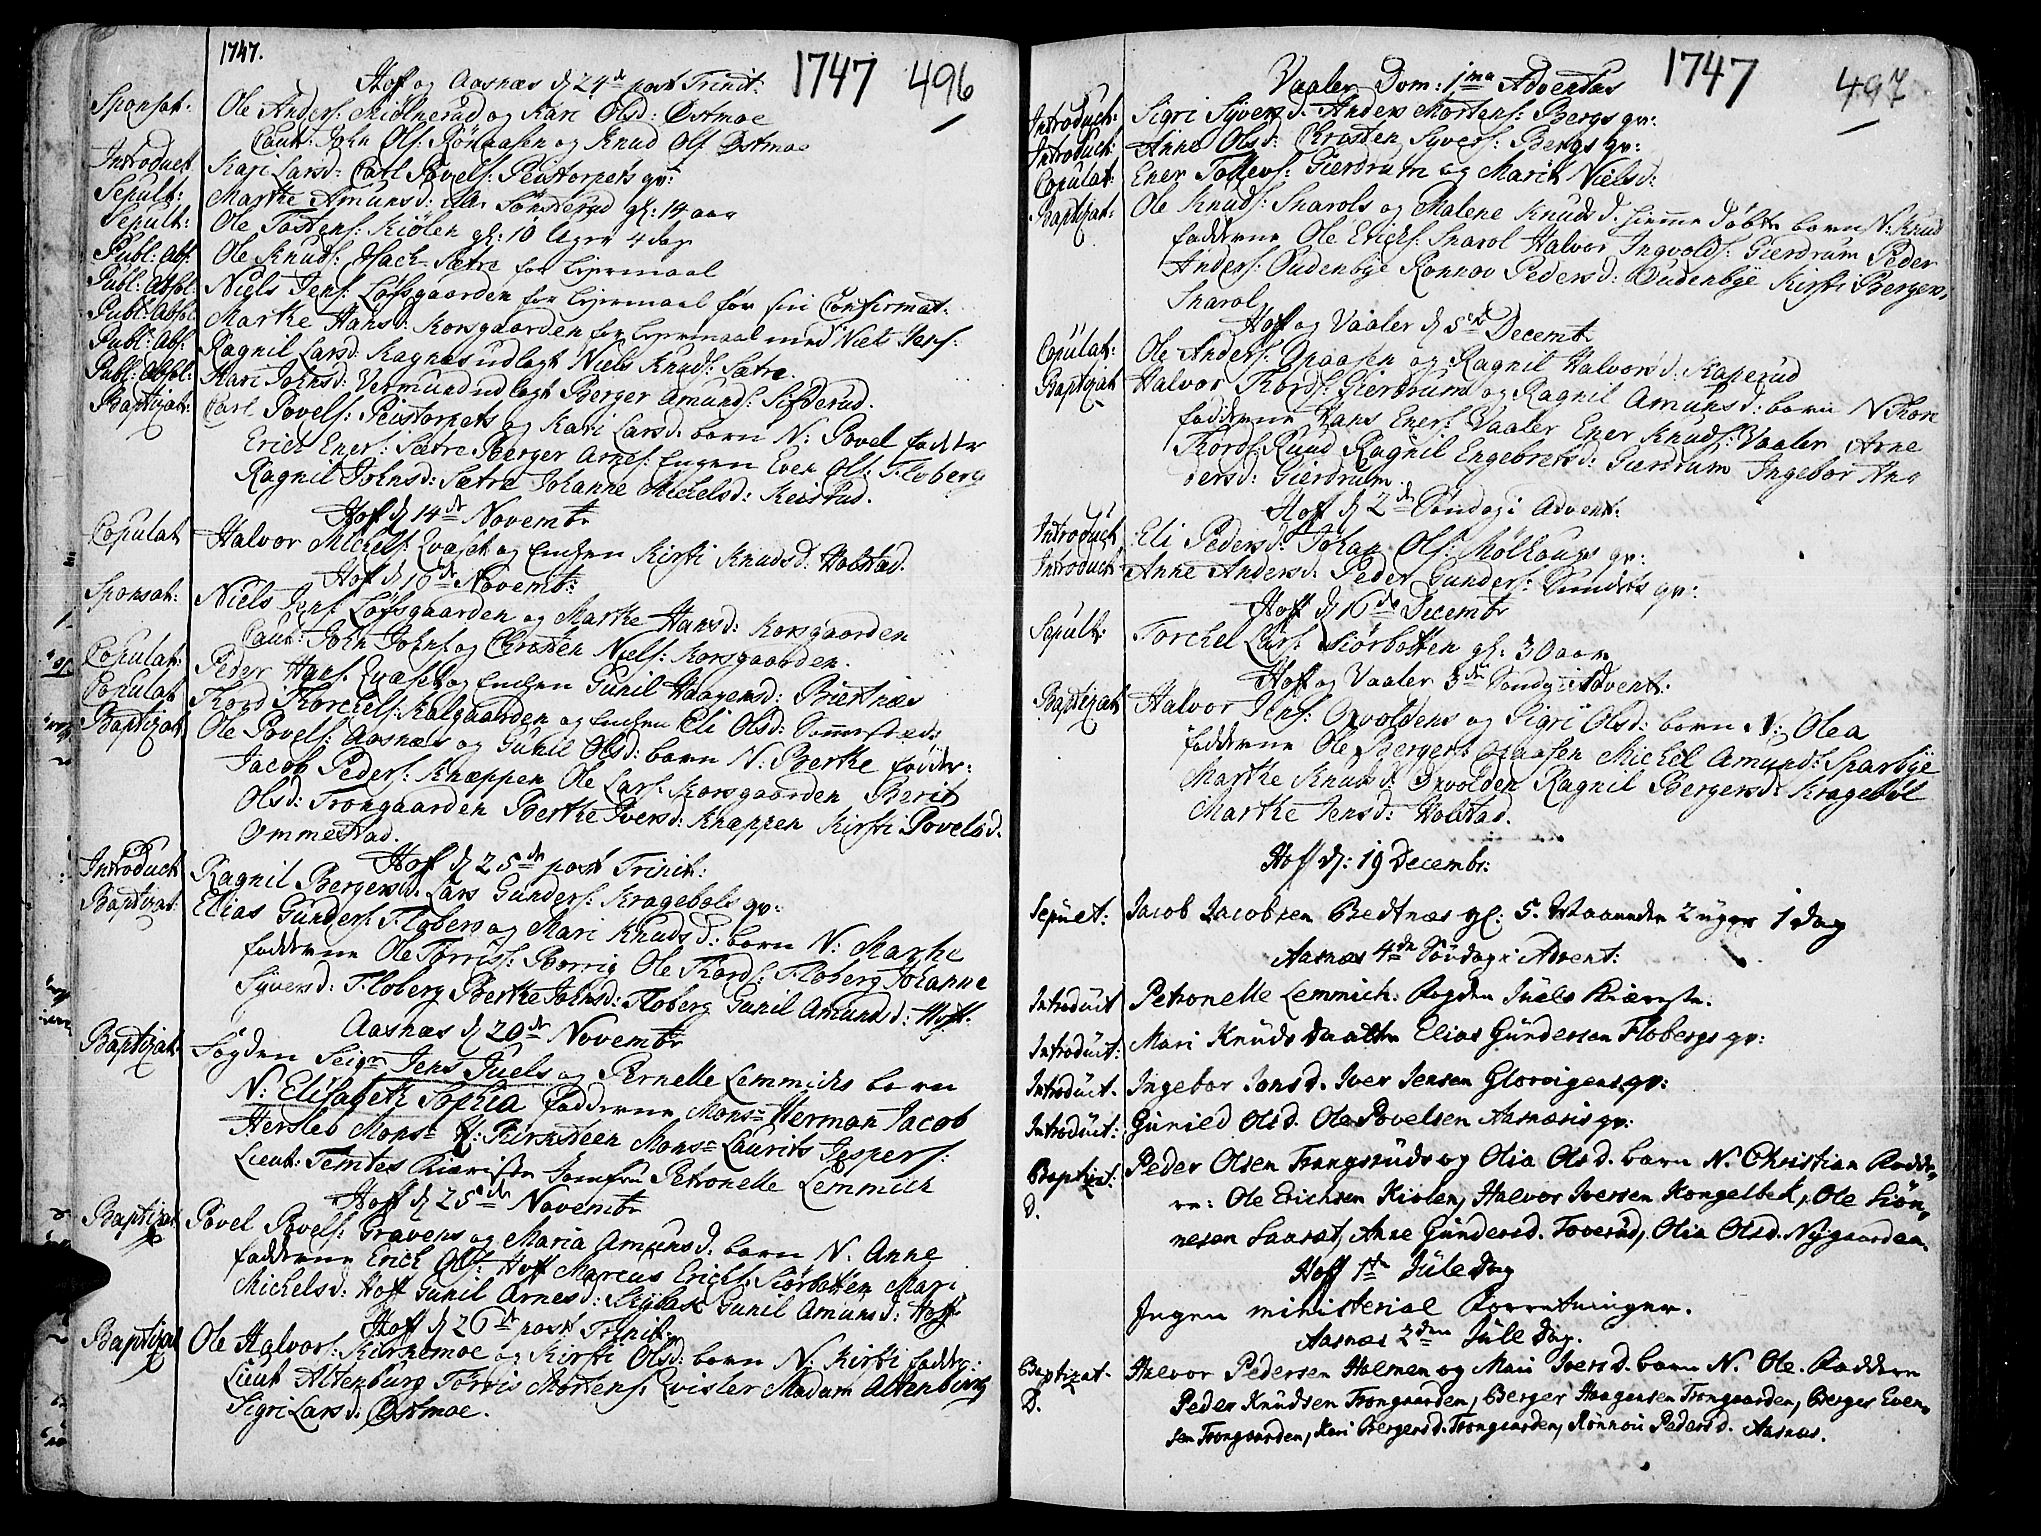 1747.
1747 496
Hoff og Aasnæs d 24de post Trinit:
Sponsat: Ole Anders: Miølnerud og Kari Olsd: Østmoe
Caut: John Ols: Rønaasen og Knud Ols: Østmoe
Introduct Kari Larsd: Carl Povels: Peistorpets qv:
Sepult: Marthe Amunds d: Sønsterud gl: 14 aar
Sepult: Ole Tostens: Kiølen gl: 10 Uger 4 dage
Publ: Abs: Ole Knuds: Hack-Sætre for Leyermaal
Publ: Absol: Niels Jens: Løfsgaarden for Leyermaal før sin Confirmat:
Publ: Absol Marthe Hansd: Korsgaarden for Leyermaal med Niels Jens:
Publ: Abs: Ragnil Larsd: Kagnæs udlagt Niels Knuds: Sætre.
Publ: Absol: Mari Johnsd: Vermund udlagt Berger Amunds: Sisderud.
Baptizat: Carl Povels: Peistorpets og Kari Larsd: barn N: Povel fadder
Erich Eners: Sætre Berger Arnes: Engen Even Ols: Floberg
Ragnil Johnsd: Sætre Johanne Michelsd: Keistad.
Hoff d 14de Novembr
Copulat Halvor Michels: Qvæset og Enchen Kirsti Knudsd: Holstad.
Hoff d 16de Novemb:
Sponsat: Niels Jens: Løfsgaarden og Marthe Hansd: Korsgaarden
Caut: John Johns: og Christen Niels: Korsgaarden.
Copulat: Peder Hans: Qvæset og Enchen Gunil Haagensd: Biertnæs
Copulat Thord Thorchels: Kalgaarden og Enchen Eli Olsd: Sommerstad
Baptizat Ole Povels: Aasnæs og Gunil Olsd: barn N: Berthe fadder:
Jacob Peders: Knæppen Ole Lars: Korsgaarden Berit
Olsd: Trongaarden Berthe Iversd: Knæppen Kirsti Povelsd.
Ommestad.
Hoff d 25de post Trinit:
Introduct Ragnil Bergersd: Lars Gunders: Kragebøls qv:
Baptizat: Elias Gunders: Flobers og Mari Knuds d: barn N: Marthe
fadderne Ole Torris: Borrig Ole Thords: Floberg Johanne
Syversd: Floberg Berthe Johnsd: Floberg Gunil Amundsd: Hoff.
Aasnæs d 20de Novembr
Baptizat Fogden Seigr Jens Juels og Pernelle Lemmichs barn
N: Elisabeth Sophia fadderne Monsr Herman Jacob
Hersleb Monsr H: Fiernsteen Monsr Laurits Jespers:
Lieut: Temtes Kiæriste Jomfru Petronelle Lemmich
Hoff d 25de Novembr
Baptizat Povel Povels: Gravens og Maria Amunsd: barn N: Anne
fadderne Erich Ols: Hoff Marcus Erichs: Siørbotten Mari
Michelsd: Hoff Gunil Arnesd: Skybak Gunil Amunsd: Hoff
Hoff d 26de post Trinit:
Baptizat Ole Halvors: Kirkemoe og Kirsti Olsd: barn N: Kirsti fadder:
Lieut Altenburg Torris Mortens: Qvisler Madam Altenburg
Sigri Larsd: Østmoe.
1747
497
Vaaler Dom: 1ma Adventus
Introduct: Sigri Syvers d. Anders Mortens: Bergs qv:
Introduct: Anne Olsd: Christen Syvers: Bergs qv:
Copulat: Ener Tollevs: Gierdrum og Marit Nielsd:
Baptizat: Ole Knuds: Snarols og Malene Knuds d. hjemme døbte barn N: Knud
fadderne Ole Erichs: Snarol Halvor Ingvolds: Gierdrum Peder
Anders: Oudenbye Rønnov Pedersd: Oudenbye Kirsti Bergers.
Snarol
Hoff og Vaaler d 5te Decembr
Copulat: Ole Anders: Opaasen og Ragnil Halvorsd: Kaperud
Baptizat Halvor Thords: Gierdrum og Ragnil Amunsd: barn N: Thore
fadderne Hans Eners: Vaaler Ener Knuds: Vaaler Arne
Thords: Ruud Ragnil Engebretsd: Gierdrum Ingebor An-
dersd: Gierdrum.
Hoff d 2de Søndag i Advent:
Introduct Eli Pedersd: Johan Ols: Mølhougs qv:
Introduct Anne Andersd: Peder Gunders: Sundets qv:
Hoff d 16de Decembr
Sepult: Torchel Lars: Siørbotten gl: 30 aar
Hoff og Vaaler 3de Søndag i Advent:
Baptizat Halvor Jens: Opvoldens og Sigri Olsd: barn N: Olea
fadderne Ole Bergers: Opaasen Michel Amund: Sparbye
Marthe Knuds d: Opvolden Ragnil Bergersd: Kragebøl
Marthe Jensd: Holstad.
Hoff d: 19 Decembr:
Sepult: Jacob Jacobsen Bedtnæs gl: 5. Maaneder 2 uger 1 dag
Aasnæs 4de Søndag i Advent:
Introduct Petronelle Lemmich: Fogden Juels Kiæreste.
Introduct: Mari Knuds Daatter Elias Gundersen Flobergs qv:
Introduct. Ingebor Jonsd. Iver Jensen Glorvigens qv:
Introduct: Gunild Olsd. Ole Povelsen Aasnæsis qv:
Baptizat: Peder Olsen Trangsruds og Olia Olsd. barn N. Christian Fadde-
D. re: Ole Erichsen Kiølen, Halvor Iversen Kongelbek, Ole Siøn-
nesen Saaset, Anne Gundersd. Toverud, Olia Olsd. Nygaarden.
Hoff 1te Jule Dag
Ingen ministerial Forretninger.
Aasnæs 2den Jule Dag.
Baptizat. Halvor Pedersen Holmen og Mari Iversd. barn N. Ole. Faddere
D. Peder Knudsen Trongaarden, Berger Haagensen Trongaarden, Berger Even-
sen Trongaarden, Kari Bergersd. Trongaarden, Rønnou Pedersd. Aasnæs.